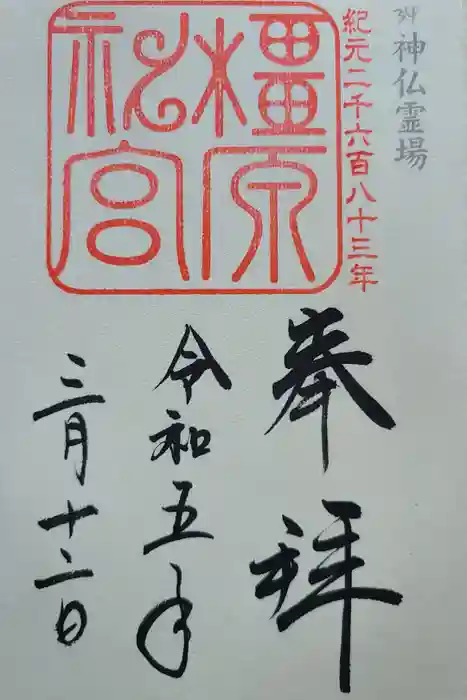 34 神仏霊場
紀元二千六百八十三年
橿原
神宮
奉拝
令和五年
三月十二日